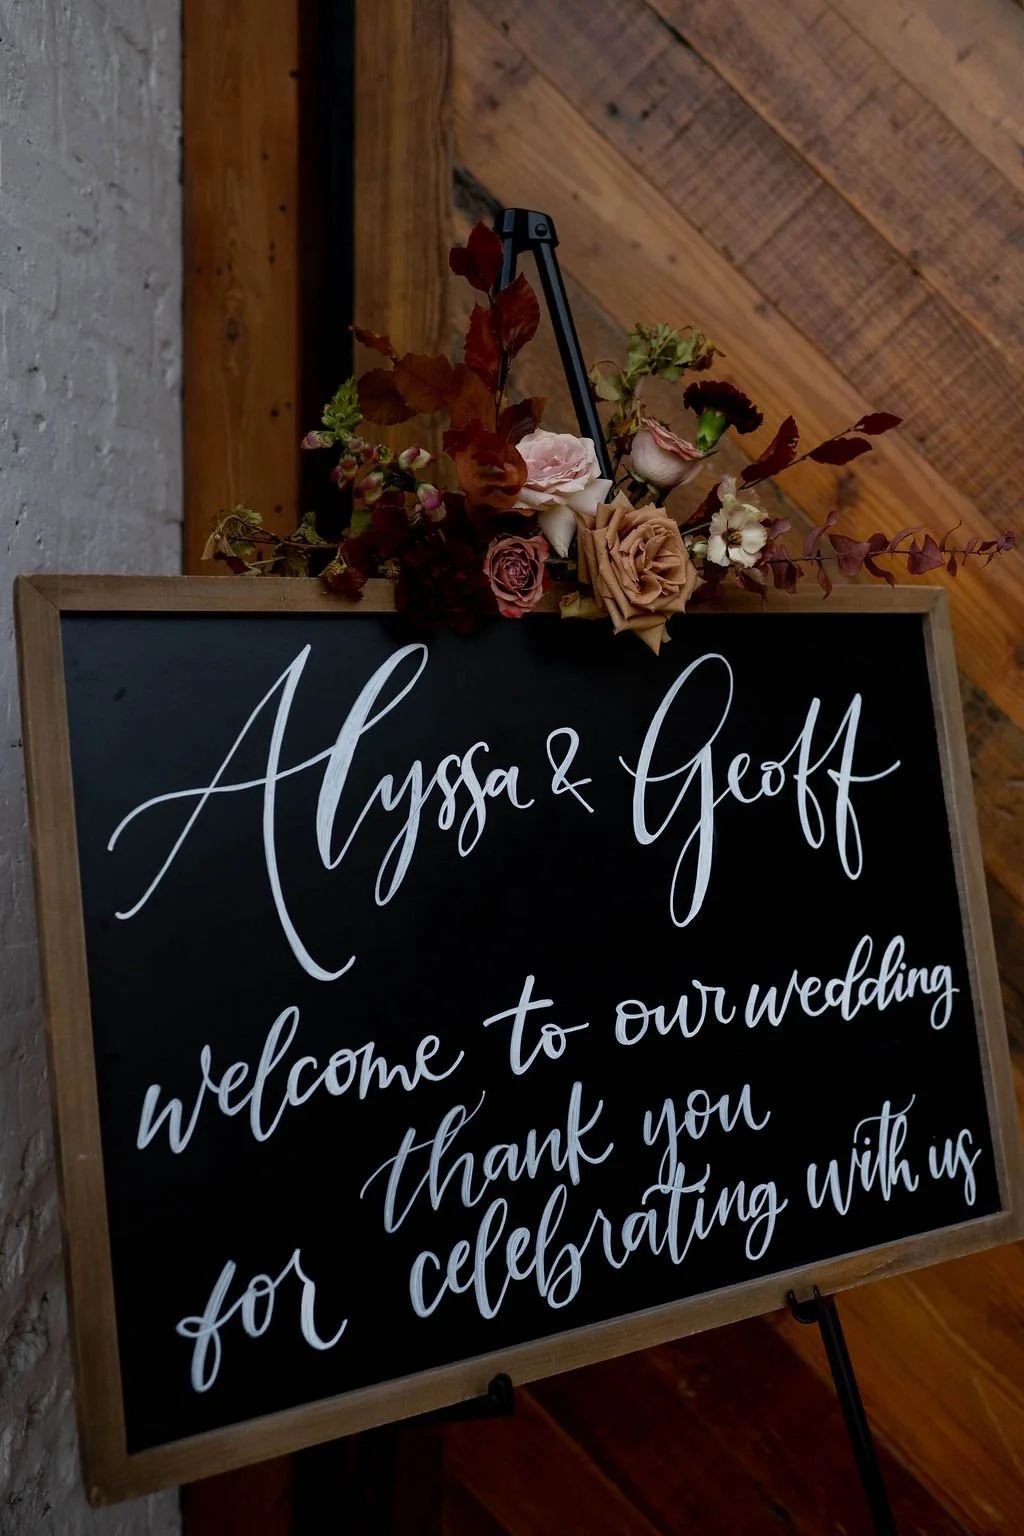 Alyssa & Geoff
welcome to our wedding
thank you
for celebrating with us